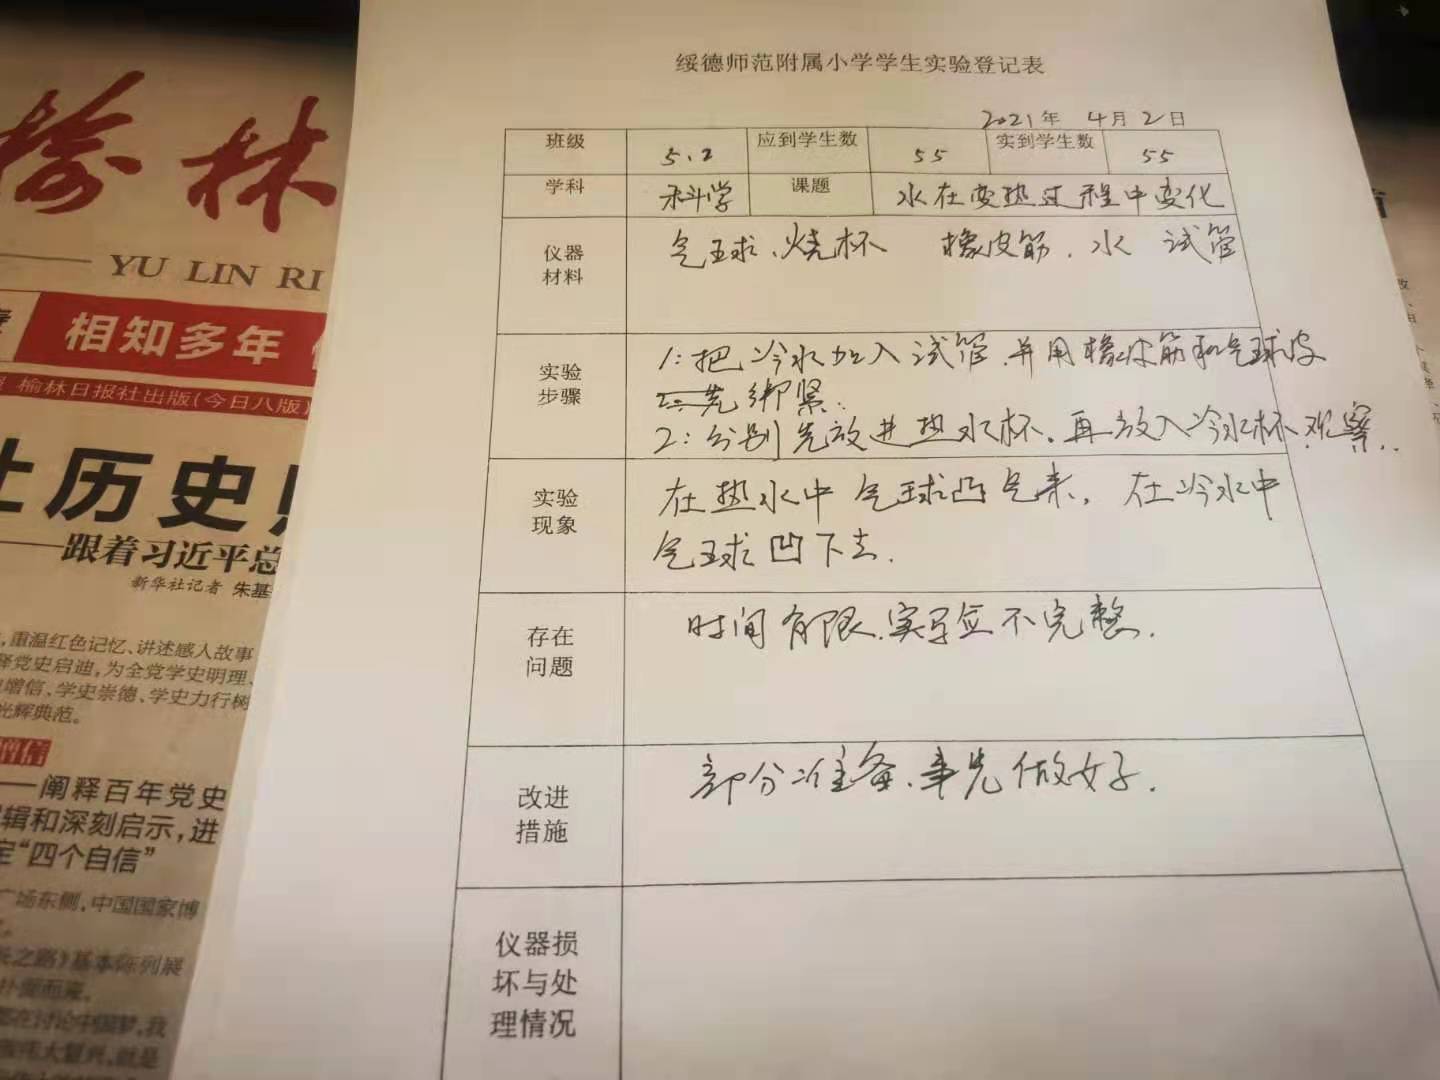 绥德师范附属小学学生实验登记表
2021年 4月2日
班级 5.2 应到学生数 55 实到学生数 55
学科 科学 课题 水在变热过程中变化
仪器
材料
气球、烧杯 橡皮筋、水 试管
实验
步骤
1:把冷水加入试管,并用橡皮筋和气球皮
绑紧.
2:分别先放进热水杯,再放入冷水杯观察..
实验
现象
在热水中气球凸气来,在冷水中
气球凹下去.
存在
问题
时间有限,实验不完整.
改进
措施
部分准备、事先做好.
仪器损
坏与处
理情况
榆林
YU LIN RI
相知多年
榆林日报社出版(今日八版)
历史
——跟着习近平总
新华社记者 朱基
,重温红色记忆、讲述感人故事
党史启迪,为全党学史明理、
增信、学史崇德、学史力行树
光辉典范。
增信
——阐释百年党史
辑和深刻启示,进
定“四个自信”
广场东侧,中国国家博
之路》基本陈列展
扑面而来。
都在讨论中国梦,我
伟大复兴,就是